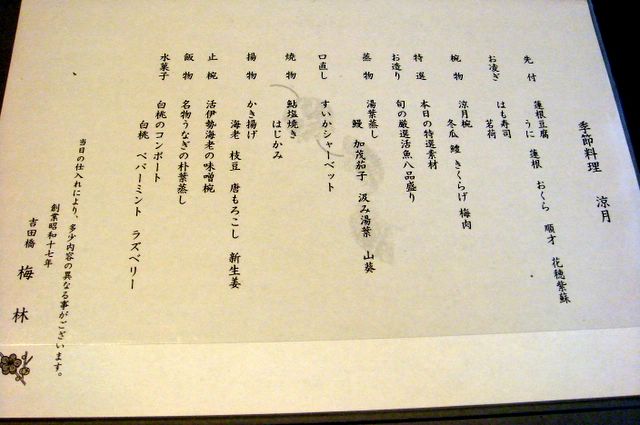 季節料理　涼月
先付　蓮根豆腐
うに　蓮根　おくら　順才　花穂紫蘇
お凌ぎ　はも寿司
茗荷
椀物　涼月椀
冬瓜　鱧　きくらげ　梅肉
特選　本日の特選素材
お造り　旬の厳選活魚八品盛り
蒸物　湯葉蒸し
鰻　加茂茄子　汲み湯葉　山葵
口直し　すいかシャーベット
焼物　鮎塩焼き
はじかみ
揚物　かき揚げ
海老　枝豆　唐もろこし　新生姜
止椀　活伊勢海老の味噌椀
飯物　名物うなぎの朴葉蒸し
水菓子　白桃のコンポート
白桃　ペパーミント　ラズベリー
当日の仕入れにより、多少内容の異なる事がございます。
創業昭和十七年
吉田橋　梅林